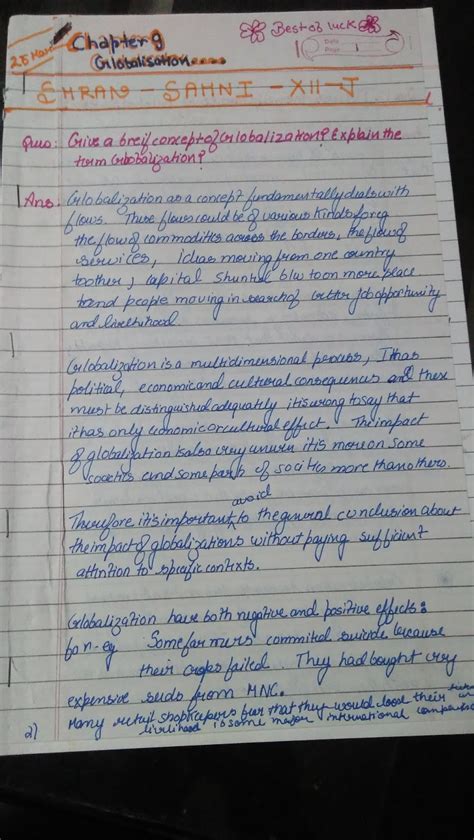 Best of luck
Date
Page
25 Mar
Chapter 9
Globalisation....
SAHNI - XII - J
Ques: Give a breif concept of Globalization? Explain the
term Globalization?
Ans. Globalization as a concept fundamentally deals with
flows. These flows could be of various kinds for eg
the flow of commodities across the borders, the flow of
services, Ideas moving from one country
to other, capital b/w two on more place
and people moving in search of better job opportunity
and livelihood
Globalization is a multidimensional process, It has
political, economic and cultural consequences and these
must be distinguished adequately it is wrong to say that
it has only economic or cultural effect. The impact
of globalization is also very uneven it is more on some
societies and some parts of societies more than others.
Therefore it is important to avoid the general conclusion about
the impact of globalizations without paying sufficient
attention to specific contexts.
Globalization have both negative and positive effects:
for eg Some farmers commited suicide because
their crops failed. They had bought very
expensive seeds from MNC.
2) Many retail shopkeepers fear that they would loose their
livelihood is some major international